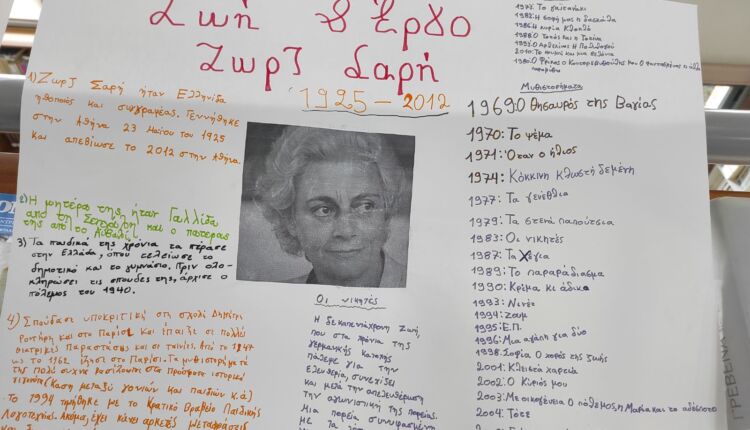 Ζωή & Έργο
Ζωρζ Σαρή
1925 - 2012
1) Ζωρζ Σαρή ήταν Ελληνίδα
ηθοποιός και συγγραφέας. Γεννήθηκε
στην Αθήνα 23 Μαΐου του 1925
και απεβίωσε το 2012 στην Αθήνα.
2) Η μητέρα της ήταν Γαλλίδα
από τη Σενεγάλη και ο πατέρας
της από το Αϊβαλί
3) Τα παιδικά της χρόνια τα πέρασε
στην Ελλάδα, όπου τελείωσε το
δημοτικό και το γυμνάσιο. Πριν ολο-
κληρώσει τις σπουδές της, άρχισε ο
πόλεμος του 1940.
4) Σπούδασε υποκριτική στη σχολή Δημήτρη
Ροντήρη και στο Παρίσι και έπαιξε σε πολλές
θιατρικές παραστάσεις και σε ταινίες. Από το 1947
ως το 1962 έζησε στο Παρίσι. Τα μυθιστορήματά
της πολύ συχνά βασίζονται στα πρόσφατα ιστορικά
γεγονότα (και μεταξύ γονιών και παιδιών κ.ά)
Το 1994 τιμήθηκε με το Κρατικό Βραβείο Παιδικής
Λογοτεχνίας. Ακόμα, έχει κάνει αρκετές μεταφράσεις
Οι νικητές
Η δεκαπεντάχρονη Ζωή,
που στα χρόνια της
γερμανικής κατοχής
πάλεψε για την
ελευθερία, συνεχίζει
και μετά την απελευθέρωση
την αγωνιστική της πορεία.
Μια πορεία συνυφασμένη
με τα
1982: Η σοφή μας η δασκάλα
1986: Η κυρία Κλοκλό
Μυθιστορήματα
1969: Ο θησαυρός της Βαγίας
1970: Το ψέμα
1971: Όταν ο ήλιος
1974: Κόκκινη κλωστή δεμένη
1977: Τα γενέθλια
1979: Τα στενά παπούτσια
1983: Οι νικητές
1987: Τα Χέγια
1989: Το παραράδιασμα
1990: Κρίμα κι άδικο
1993: Νινέτ
1994: Ζουμ
1995: Ε.Π.
1996: Μια αγάπη για δύο
1998: Σοφία Ο χορός της ζωής
2001: Κλειστά χαρτιά
2002: Ο Κύριός μου
2003: Με οικογένεια Ο πόλεμος, η Μαρία και το αδέσποτο
2004: Τότε
ΓΡΕΒΕΝΑ